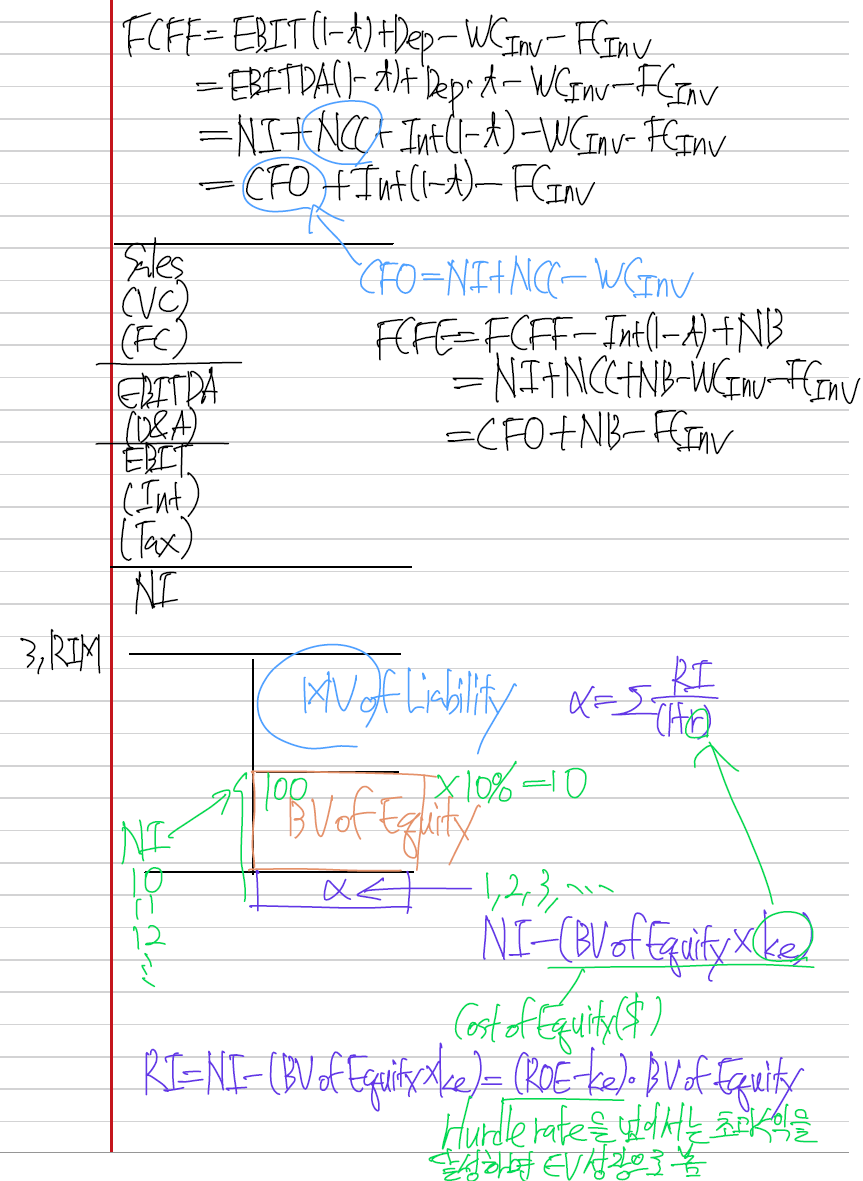 FCFF = EBIT(1-t)+Dep-WCInv-FCInv
= EBITDA(1-t)+Dep·t-WCInv-FCInv
= NI+NCC+Int(1-t)-WCInv-FCInv
= CFO+Int(1-t)-FCInv
CFO=NI+NCC-WCInv
Sales
(VC)
(FC)
EBITDA
(D&A)
EBIT
(Int)
(Tax)
NI
FCFE=FCFF-Int(1-t)+NB
=NI+NCC+NB-WCInv-FCInv
=CFO+NB-FCInv
3, RIM
MV of Liability
α=Σ RI/(1+r)
100 ×10%=10
BV of Equity
NI
10
11
12
α
1,2,3,...
NI-(BV of Equity×ke)
Cost of Equity($)
RI=NI-(BV of Equity×ke)=(ROE-ke)·BV of Equity
Hurdle rate을 넘어서는 초과수익을
달성하면 EV상광으로 봄